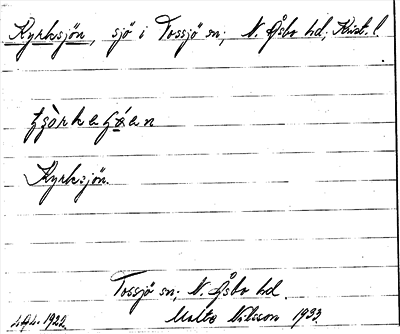 Kyrksjön, sjö i Tossjö sn; N. Åsbo hd; Krist. l.
Kyrksjön.
Tossjö sn; N. Åsbo hd.
Malte Nilsson 1933